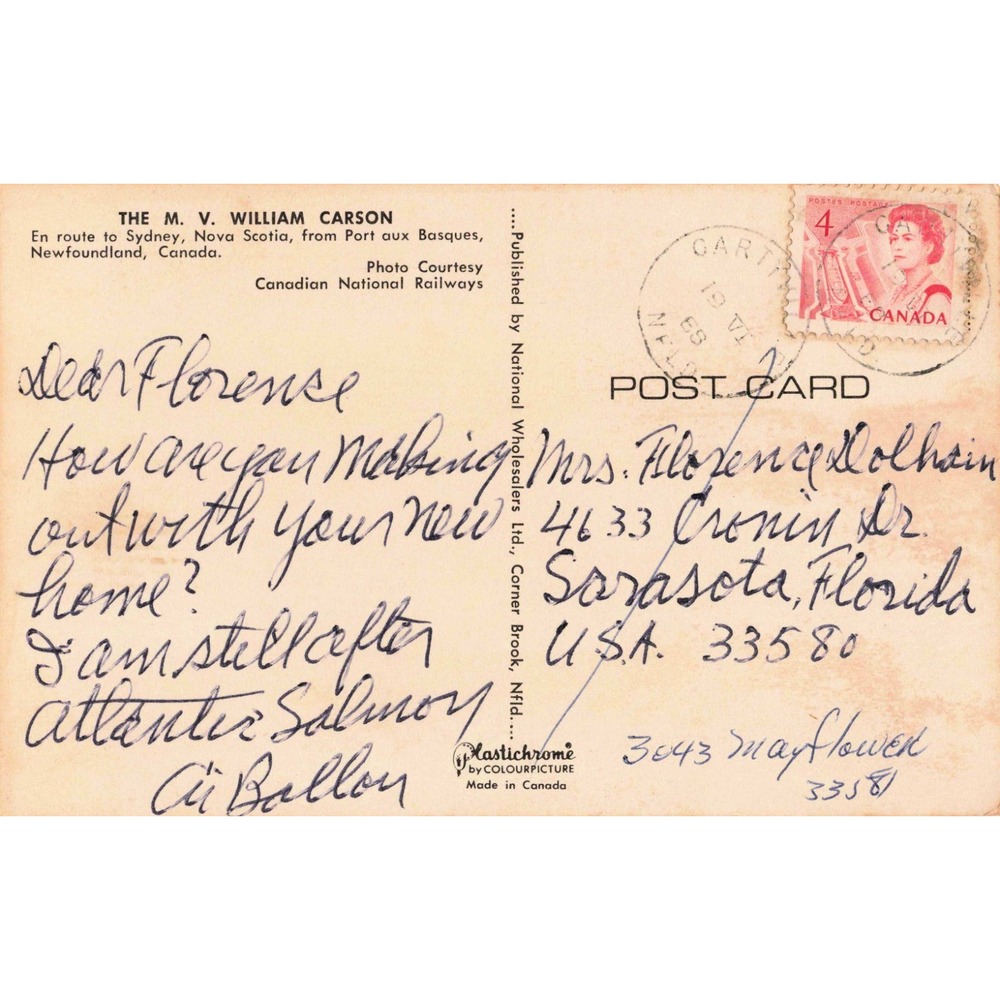 THE M. V. WILLIAM CARSON
En route to Sydney, Nova Scotia, from Port aux Basques,
Newfoundland, Canada.
Photo Courtesy
Canadian National Railways
Dear Florence
How are you Making
out with your New
home?
I am still after
Atlantic Salmon
....Published by National Wholesalers Ltd., Corner Brook, Nfld....
Plastichrome
by COLOURPICTURE
Made in Canada
POSTES POSTAGE
4
CANADA
19 VI
68
NFLD
POST CARD
Mrs. Florence Dolhain
4633 Cronin Dr.
Sarasota, Florida
U.S.A. 33580
3043 Mayflower
33581